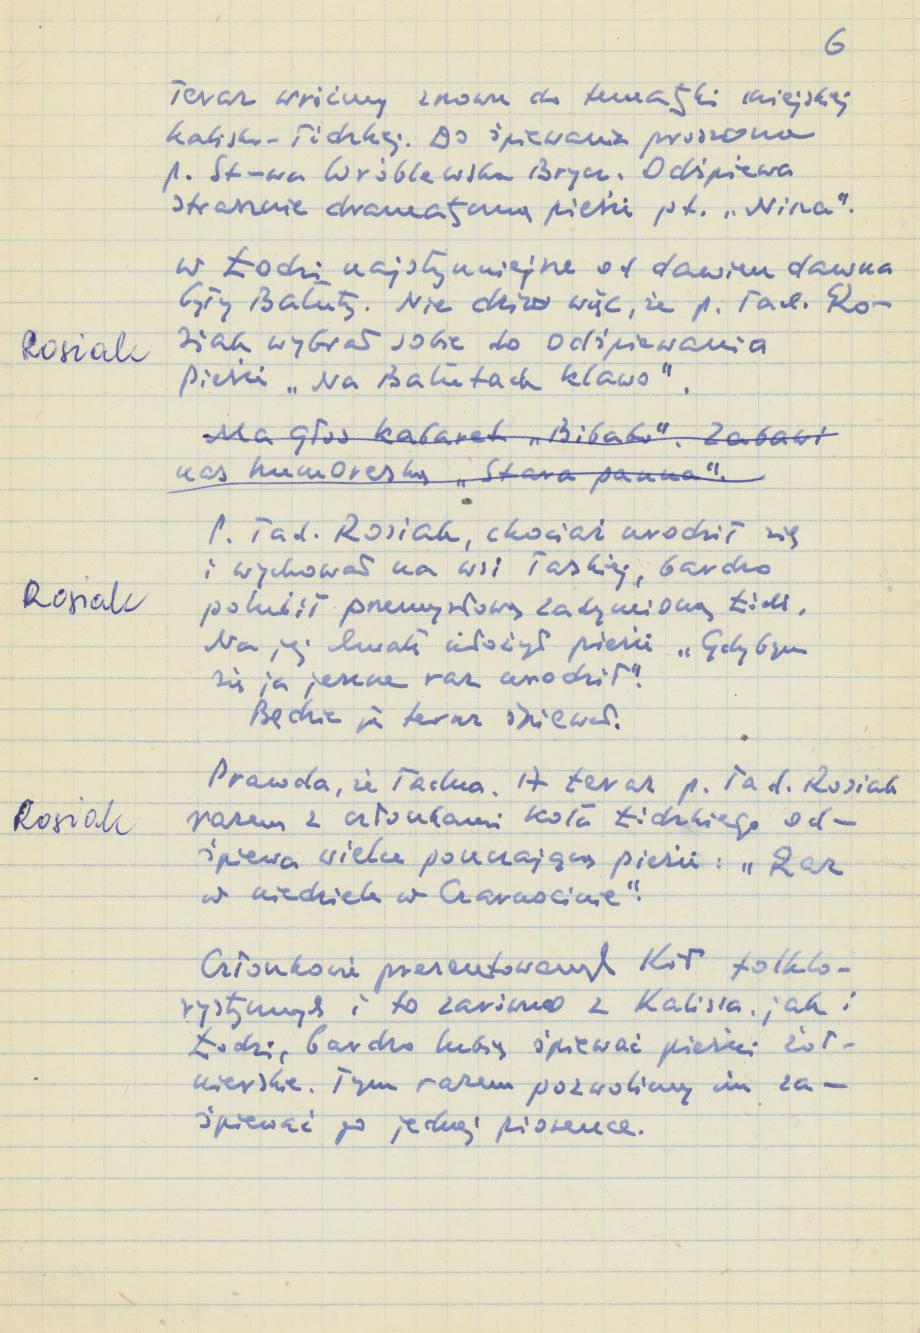 6
Teraz wróćmy znowu do tematyki miejskiej
kalisko-łódzkiej. Do śpiewania proszona
p. St-wa Wróblewska Brych. Odśpiewa
strasznie dramatyczną pieśń pt. „Nina".
W Łodzi najsłynniejsze od dawien dawna
były Bałuty. Nie dziw więc, że p. Tad. Ro-
Rosiak
siak wybrał sobie do odśpiewania
pieśń „Na Bałutach klawo".
Ma głos kabaret „Bibabo". Zabawi
nas humoreską „Stara panna".
P. Tad. Rosiak, chociaż urodził się
i wychował na wsi łaskiej, bardzo
Rosiak
polubił przemysłową zadymioną Łódź.
Na jej chwałę ułożył pieśń „Gdybym
się ja jeszcze raz urodził".
Będzie ją teraz śpiewał.
Prawda, że ładna. A teraz p. Tad. Rosiak
Rosiak
razem z członkami Koła Łódzkiego od-
śpiewa wielce pouczającą pieśń: „Raz
w niedzielę w Czarnocinie".
Członkowie prezentowanych Kół folklo-
rystycznych i to zarówno z Kalisza, jak i
Łodzi, bardzo lubią śpiewać pieśni żoł-
nierskie. Tym razem pozwolimy im za-
śpiewać po jednej piosence.